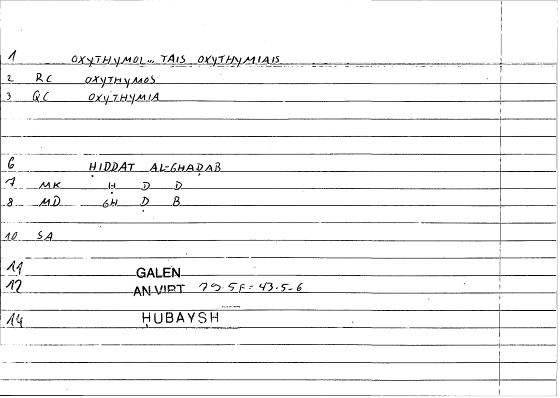 1 OXYTHYMOI... TAIS OXYTHYMIAIS
2 RC OXYTHYMOS
3 QC OXYTHYMIA
6 ḤIDDAT AL-GHAḌAB
7 MK Ḥ D D
8 MD GH Ḍ B
10 SA
11 GALEN
12 AN VIRT 79 5F = 43.5-6
14 ḤUBAYSH